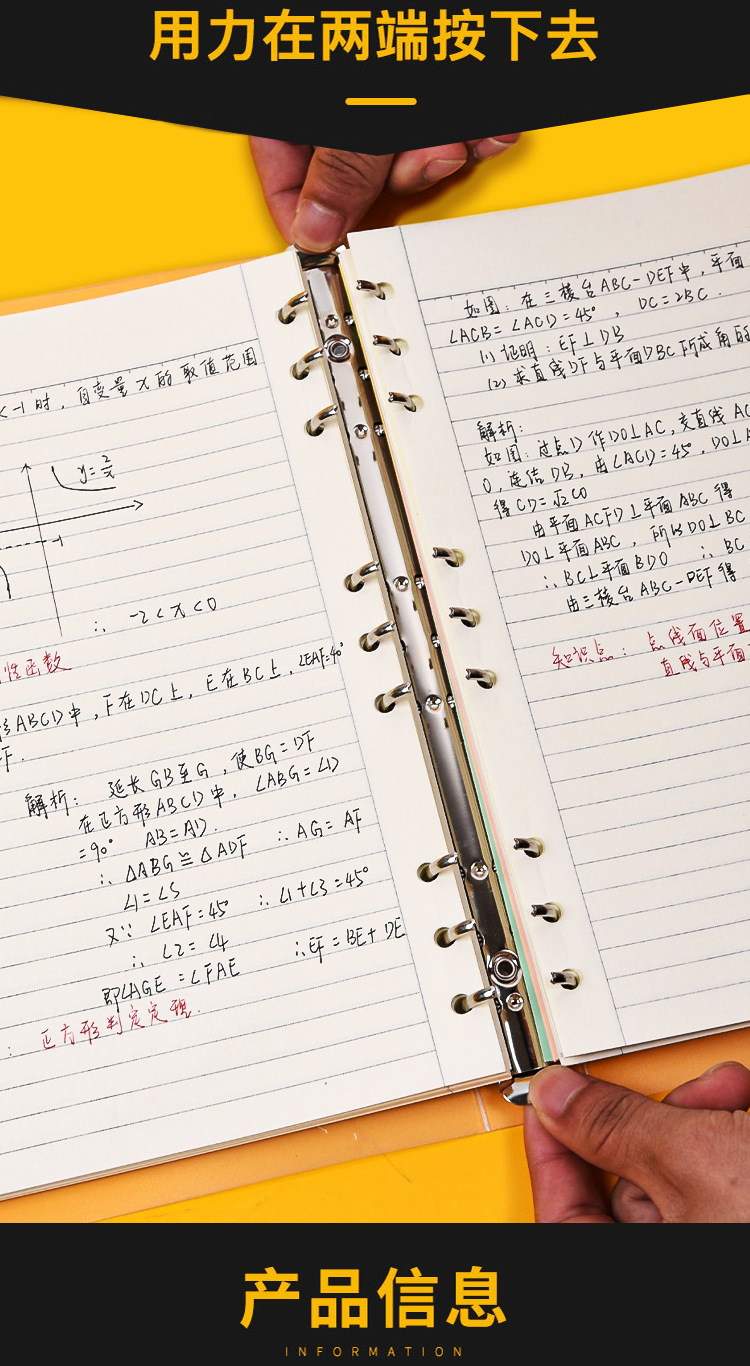 用力在两端按下去
<-1时，自变量x的取值范围
y=2/x
∴ -2<x<0
性函数
ABCD中，F在DC上，E在BC上，∠EAF=45°
F.
解析： 延长GB至G，使BG=DF
在正方形ABCD中，∠ABG=∠D
=90° AB=AD.
∴ △ABG≌△ADF ∴AG=AF
∠1=∠5
又∵ ∠EAF=45° ∴∠1+∠3=45°
∴ ∠2=∠4
即∠AGE=∠FAE ∴EF=BE+DE
： 正方形判定定理.
如图：在三棱台ABC-DEF中，平面
∠ACB=∠ACD=45°，DC=2BC.
(1)证明：EF⊥DB
(2)求直线DF与平面DBC所成角的
解析：
如图：过点D作DO⊥AC，交直线AC
O，连结DB，由∠ACD=45°，DO⊥A
得CD=√2CO
由平面ACFD⊥平面ABC得
DO⊥平面ABC，所以DO⊥BC
∴BC⊥平面BDO ∴BC
由三棱台ABC-DEF得
知识点：点线面位置
直线与平面
产品信息
INFORMATION